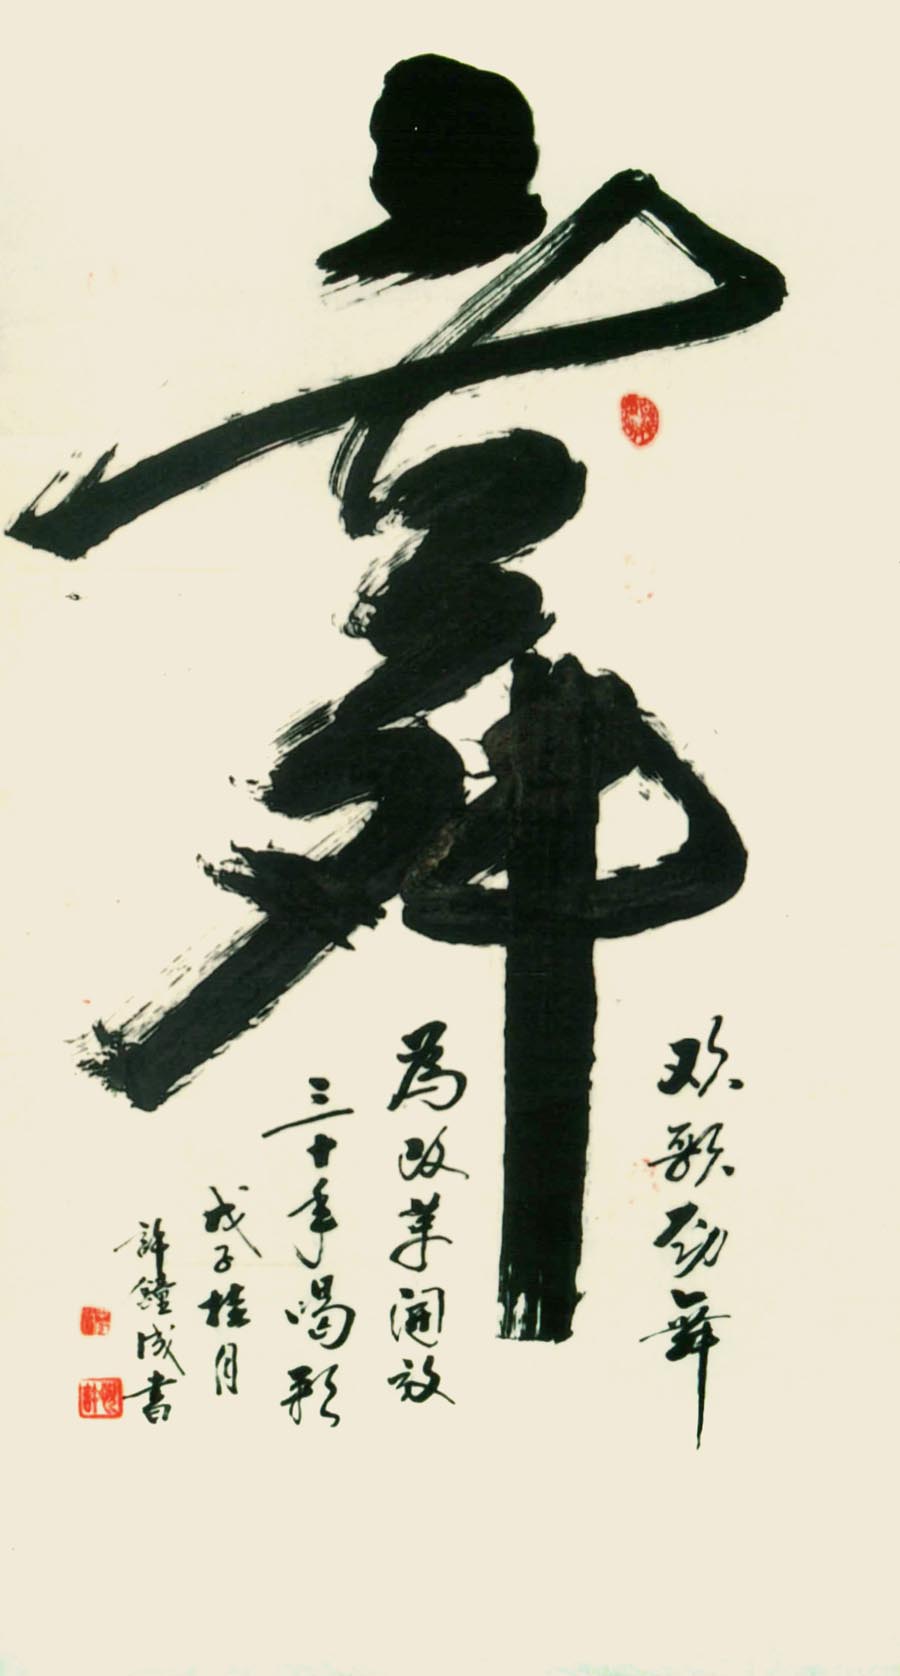 舞
欢歌劲舞
為改革開放
三十年喝彩
戊子桂月
許鐘成書